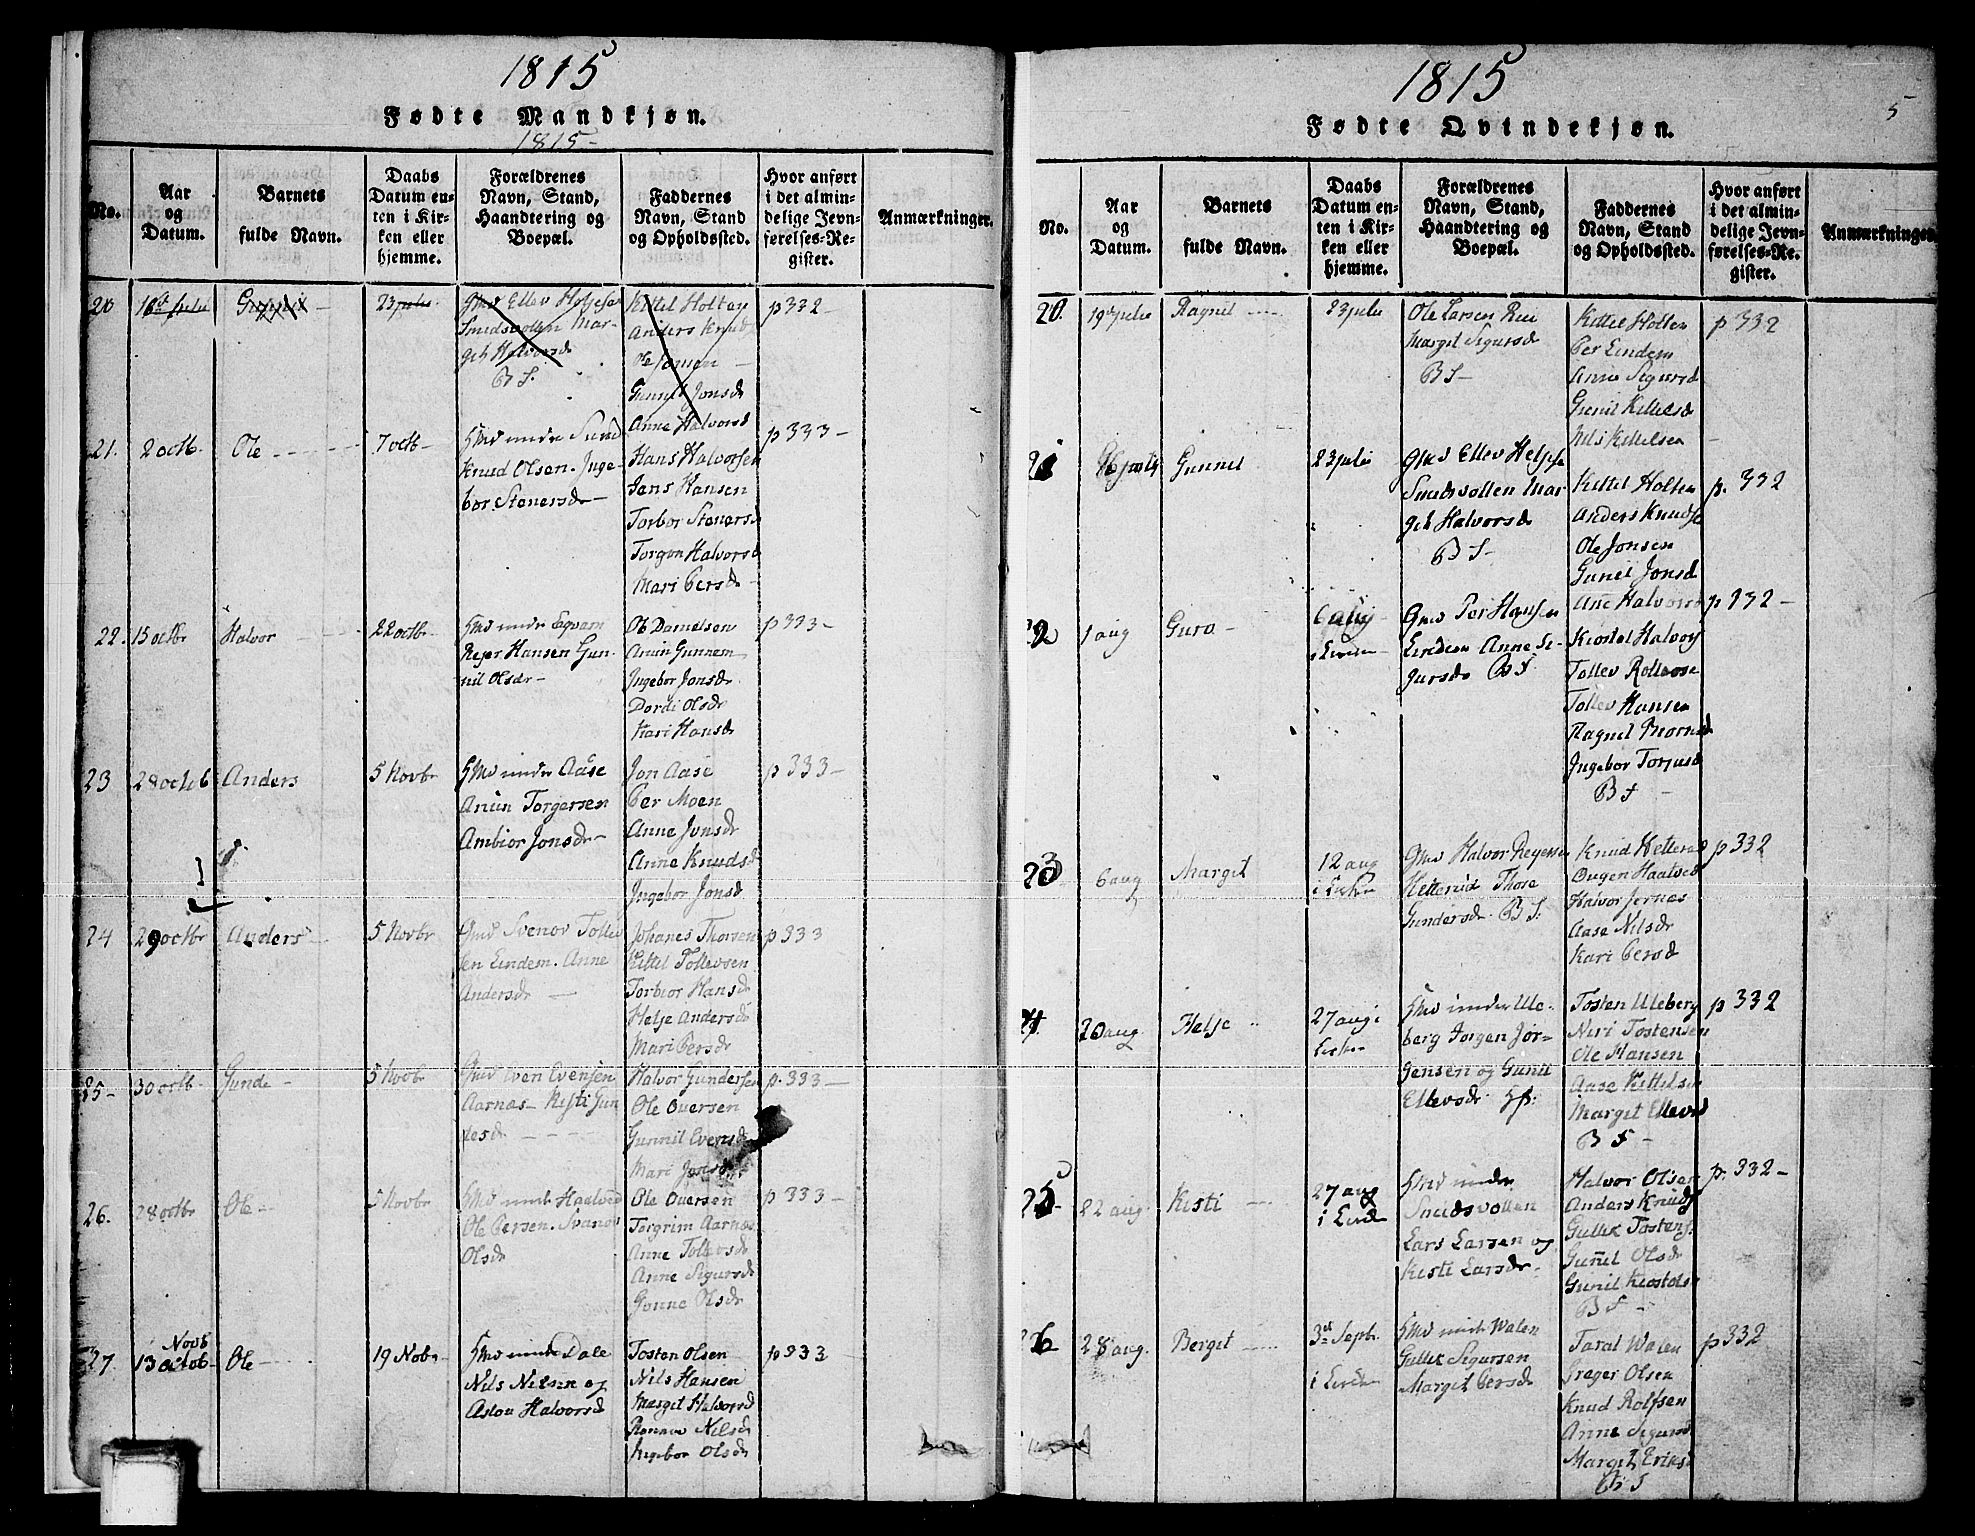 1815
Fødte Mandkjøn.
1815-
No.
Aar og Datum.
Barnets fulde Navn.
Daabs Datum enten i Kirken eller hjemme.
Forældrenes Navn, Stand, Haandtering og Boepæl.
Faddernes Navn, Stand og Opholdssted.
Hvor anført i det almindelige Jevnførelses-Register.
Anmærkninger.
20
23 julii
Gmd Ellev Heljesen
Smedsvollen Mar-
git Halvorsd
B S.
Kittel Holten
Anders Knuds
Ole Jonsen
Gunnil Jonsd
Anne Halvorsd
p 332 -
21.
2 octb.
Ole
7 octb-
Knud Olsen. Inge-
bor Stenersdr-
Hans Halvorsen
Jens Hansen
Torbor Stenersd
Torgon Halvorsd
Mari Persdr
p 333-
22.
15 octbr
Halvor
22 octbr
Rejer Hansen Gun-
nil Olsdr-
Ole Danielsen
Ingebor Jonsdr
Dordi Olsdr
Kari Hansdr
p 333-
23
28 octob
Anders
5 Novbr
Hmd under Aase
Anun Torgersen
Ambior Jonsdr-
Jon Aase
Per Moen
Anne Jonsdr
Anne Knudsdr
Ingebor Jonsd
p 333-
24
29 octbr
Anders
5 Novbr
Gmd Svenor Tollev
sen Lindem. Anne
Andersdr -
Johanes Thorsen
Kittel Tollevsen
Torbior Hansdr
Helje Andersdr
Mari Persdr
p 333
25-
30 octb-
Gunde -
5 Novbr
Gmd Even Evensen
Aarnæs- Kisti Gun
desdr
Halvor Gundersen
Ole Oversen
Gunnil Evensdr
Mari Jonsdr
p. 333-
26.
28 octbr
Ole -
5 Novbr
Hmd under Haatved
Ole Persen. Svanou
Olsdr
Ole Oversen
Torgrim Aarnæs
Anne Tollevsdr
Anne Sigursdr
Gonne Olsdr
p 333-
27.
Novb
13 octob-
Ole -
19 Novbr
Hmd under Dale
Nils Nilsen og
Aslou Halvorsd
Tosten Olsen
Nils Hansen
Margit Halvorsd
Nilsdr
Ingebor Olsdr
p 333
1815
5
Fødte Qvindekjøn.
No.
Aar og Datum.
Barnets fulde Navn.
Daabs Datum enten i Kirken eller hjemme.
Forældrenes Navn, Stand, Haandtering og Boepæl.
Faddernes Navn, Stand og Opholdssted.
Hvor anført i det almindelige Jevnførelses-Register.
Anmærkninger.
20.
19 julii
Ragnil
23 julii
Ole Larsen Rue
Margit Sigursd
B S-
Kittel Holten
Per Lindem
Anne Sigursd
Gunil Kittelsd
Nils Kittelsen
p 332
21
Gunnil
23 julii
Gmd Ellev Heljese
Smedsvollen Mar
git Halvorsdr
B S-
Kittel Holten
Anders Knudse
Ole Jonsen
Gunil Jonsd
Ane Halvorsd
p. 332
22
1 aug
Guro -
6 aug
Gmd Per Hansen
Lindem Anne Si-
gursdr B S
Kiostol Halvors
Tollev Hansen
Ingebor Torjusd
B S -
p 332-
23
6 aug
Margit
12 aug
Gmd Halvor Reyersen
Hetterud Those
Gundersdr. B S.
Knud Hetterud
Ougen Haatved
Halvor Jernæs
Aase Nilsdr
Kari Persd
p 332
24.
20 aug
Helje
27 aug i
Hmd under Ule-
berg Jorgen Jor-
gensen og Gunil
Ellevsdr
Tosten Uleberg
Neri Tostensen
Ole Hansen
Aase Kittelsd
Margit Ellevsd
B S -
p 332
25-
22 aug.
Kisti
27 aug
Hmd under
Smedsvollen
Lars Larsen og
Kisti Larsdr-
Halvor Olsen
Anders Knuds
Gullik Tostens.
Gunnil Olsdr
Gunil Kiostolsd
B S -
p. 332-
26
28 aug.
Berget
3d Septb.
Hmd under Walen
Gullik Sigursen
Margit Persdr
Taral Walen
Greger Olsen
Knud Rolfsen
Anne Sigursd
Margit Eriksd
B S
p 332